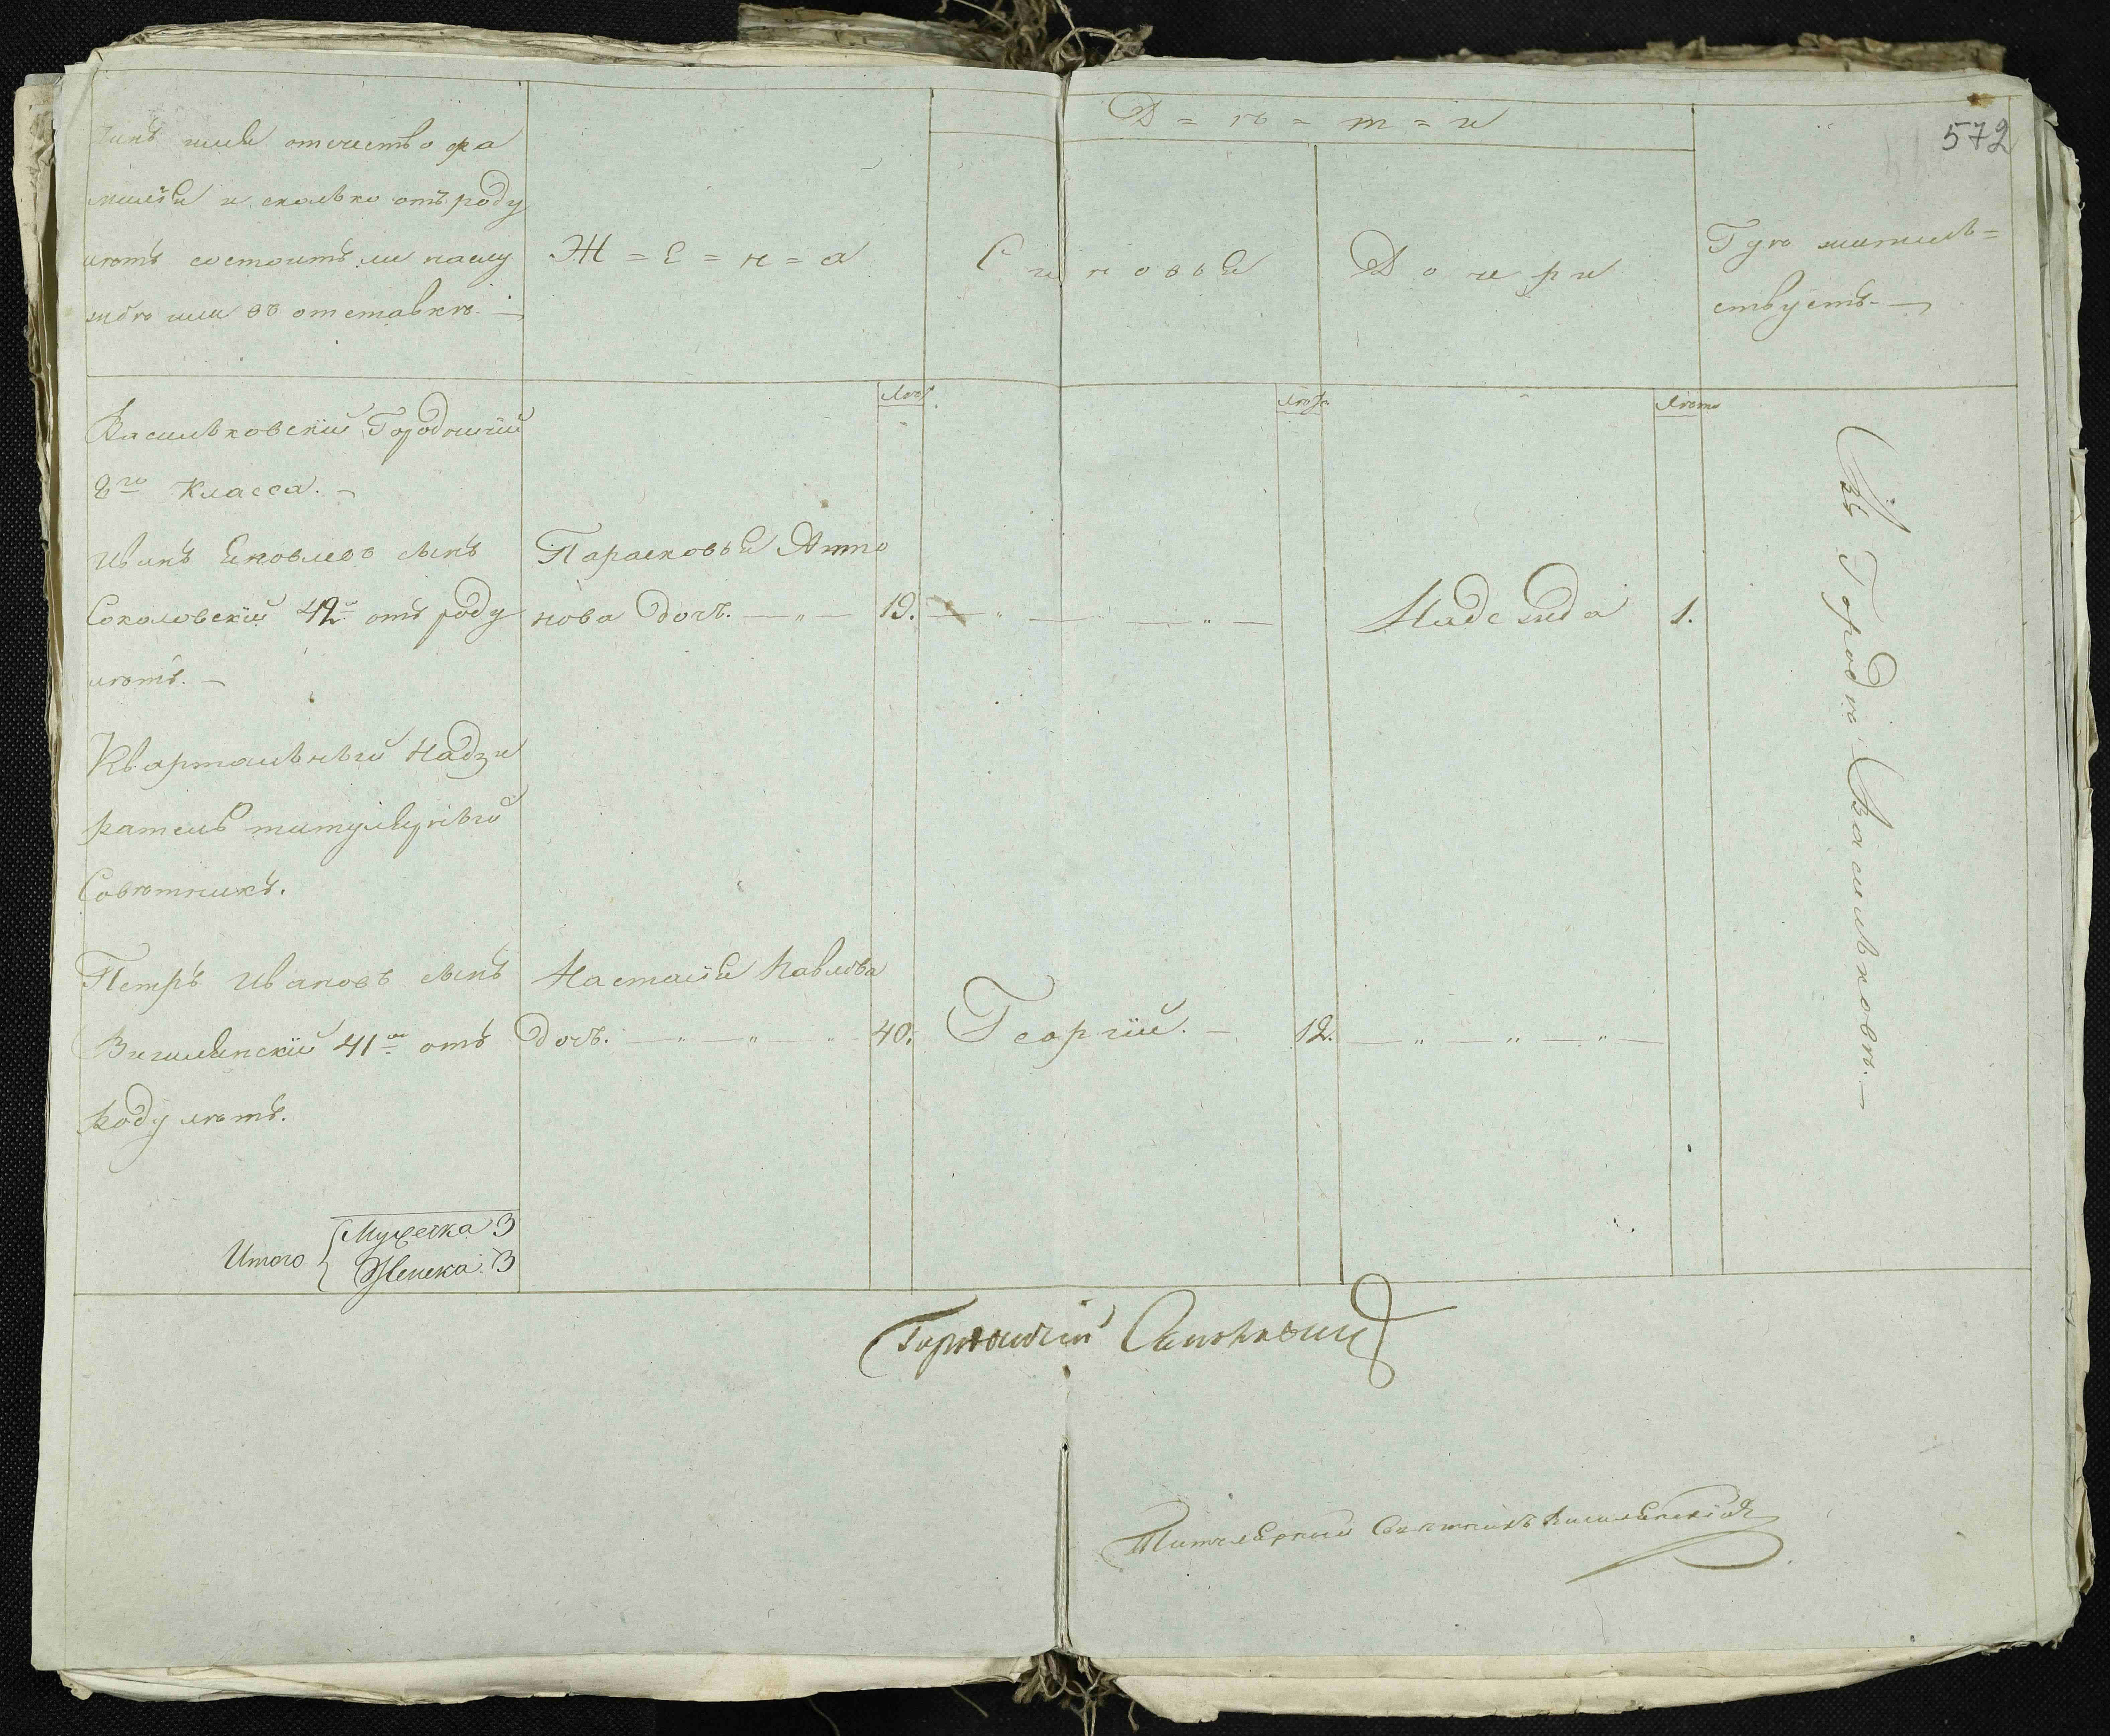 572
Чинъ имя отечество фа
милія и сколько отъ роду
лѣтъ состоитъ ли наслу
жбѣ или въ отставкѣ. —
Ж = е = н = а
Д = ѣ = т = и
Синовья
Дочери
Гдѣ житель=
ствуетъ. —
Лѣтъ
Лѣта
Лѣта
Васильковскій Городничій
8го Класса. —
Иванъ Яковлевъ сынъ
Соколовскій 42 отъ роду
лѣтъ. —
Парасковья Анто
нова дочь. — „ — 19.
— „ — — „ —
Надежда 1.
Въ Городѣ Василковѣ. —
Квартальный Надзи
ратель титулярный
Совѣтникъ.
Петръ Ивановъ сынъ
Вигилянскій 41 отъ
роду лѣтъ.
Настасія Павлова
дочь. — „ — „ — 40.
Георгій. — 12.
— „ — „ — „ —
Итого { Мужеска 3
Женска. 3
Городничій
Титулярный Совѣтникъ Вигилянскій